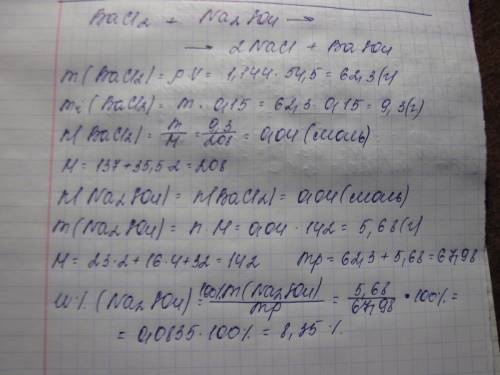 BaCl₂ + Na₂SO₄ →
→ 2NaCl + BaSO₄
m(BaCl₂) = ρ·V = 1,144 · 54,5 = 62,3 (г)
mч(BaCl₂) = m · 0,15 = 62,3 · 0,15 = 9,3 (г)
n(BaCl₂) = m/M = 9,3/208 = 0,04 (моль)
M = 137 + 35,5·2 = 208
n(Na₂SO₄) = n(BaCl₂) = 0,04 (моль)
m(Na₂SO₄) = n·M = 0,04 · 142 = 5,68 (г)
M = 23·2 + 16·4 + 32 = 142 mр = 62,3 + 5,68 = 67,98
W%(Na₂SO₄) = 100% m(Na₂SO₄)/mр = 5,68/67,98 · 100% =
= 0,0835 · 100% = 8,35%.